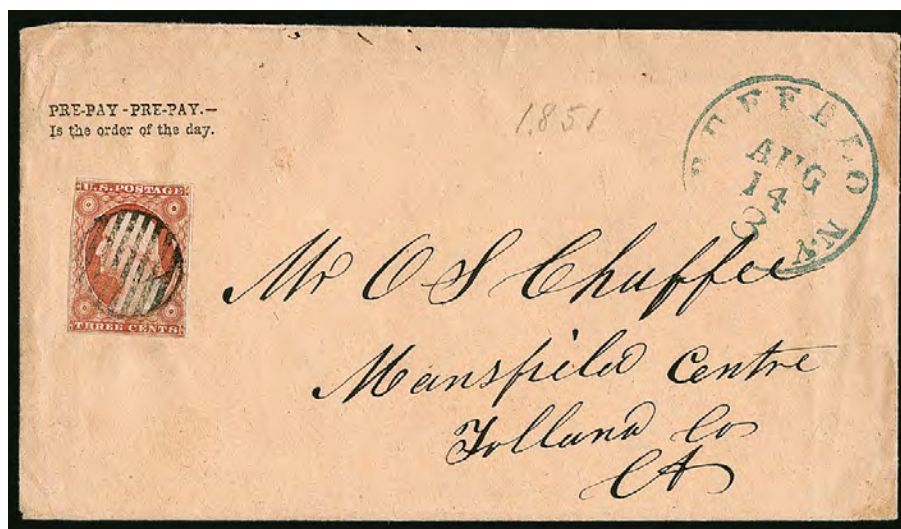 PRE-PAY - PRE-PAY.—
Is the order of the day.
1851
BUFFALO N.Y.
AUG
14
3
U.S. POSTAGE
THREE CENTS
Mr O S Chaffee
Mansfield Centre
Tolland Co
Ct